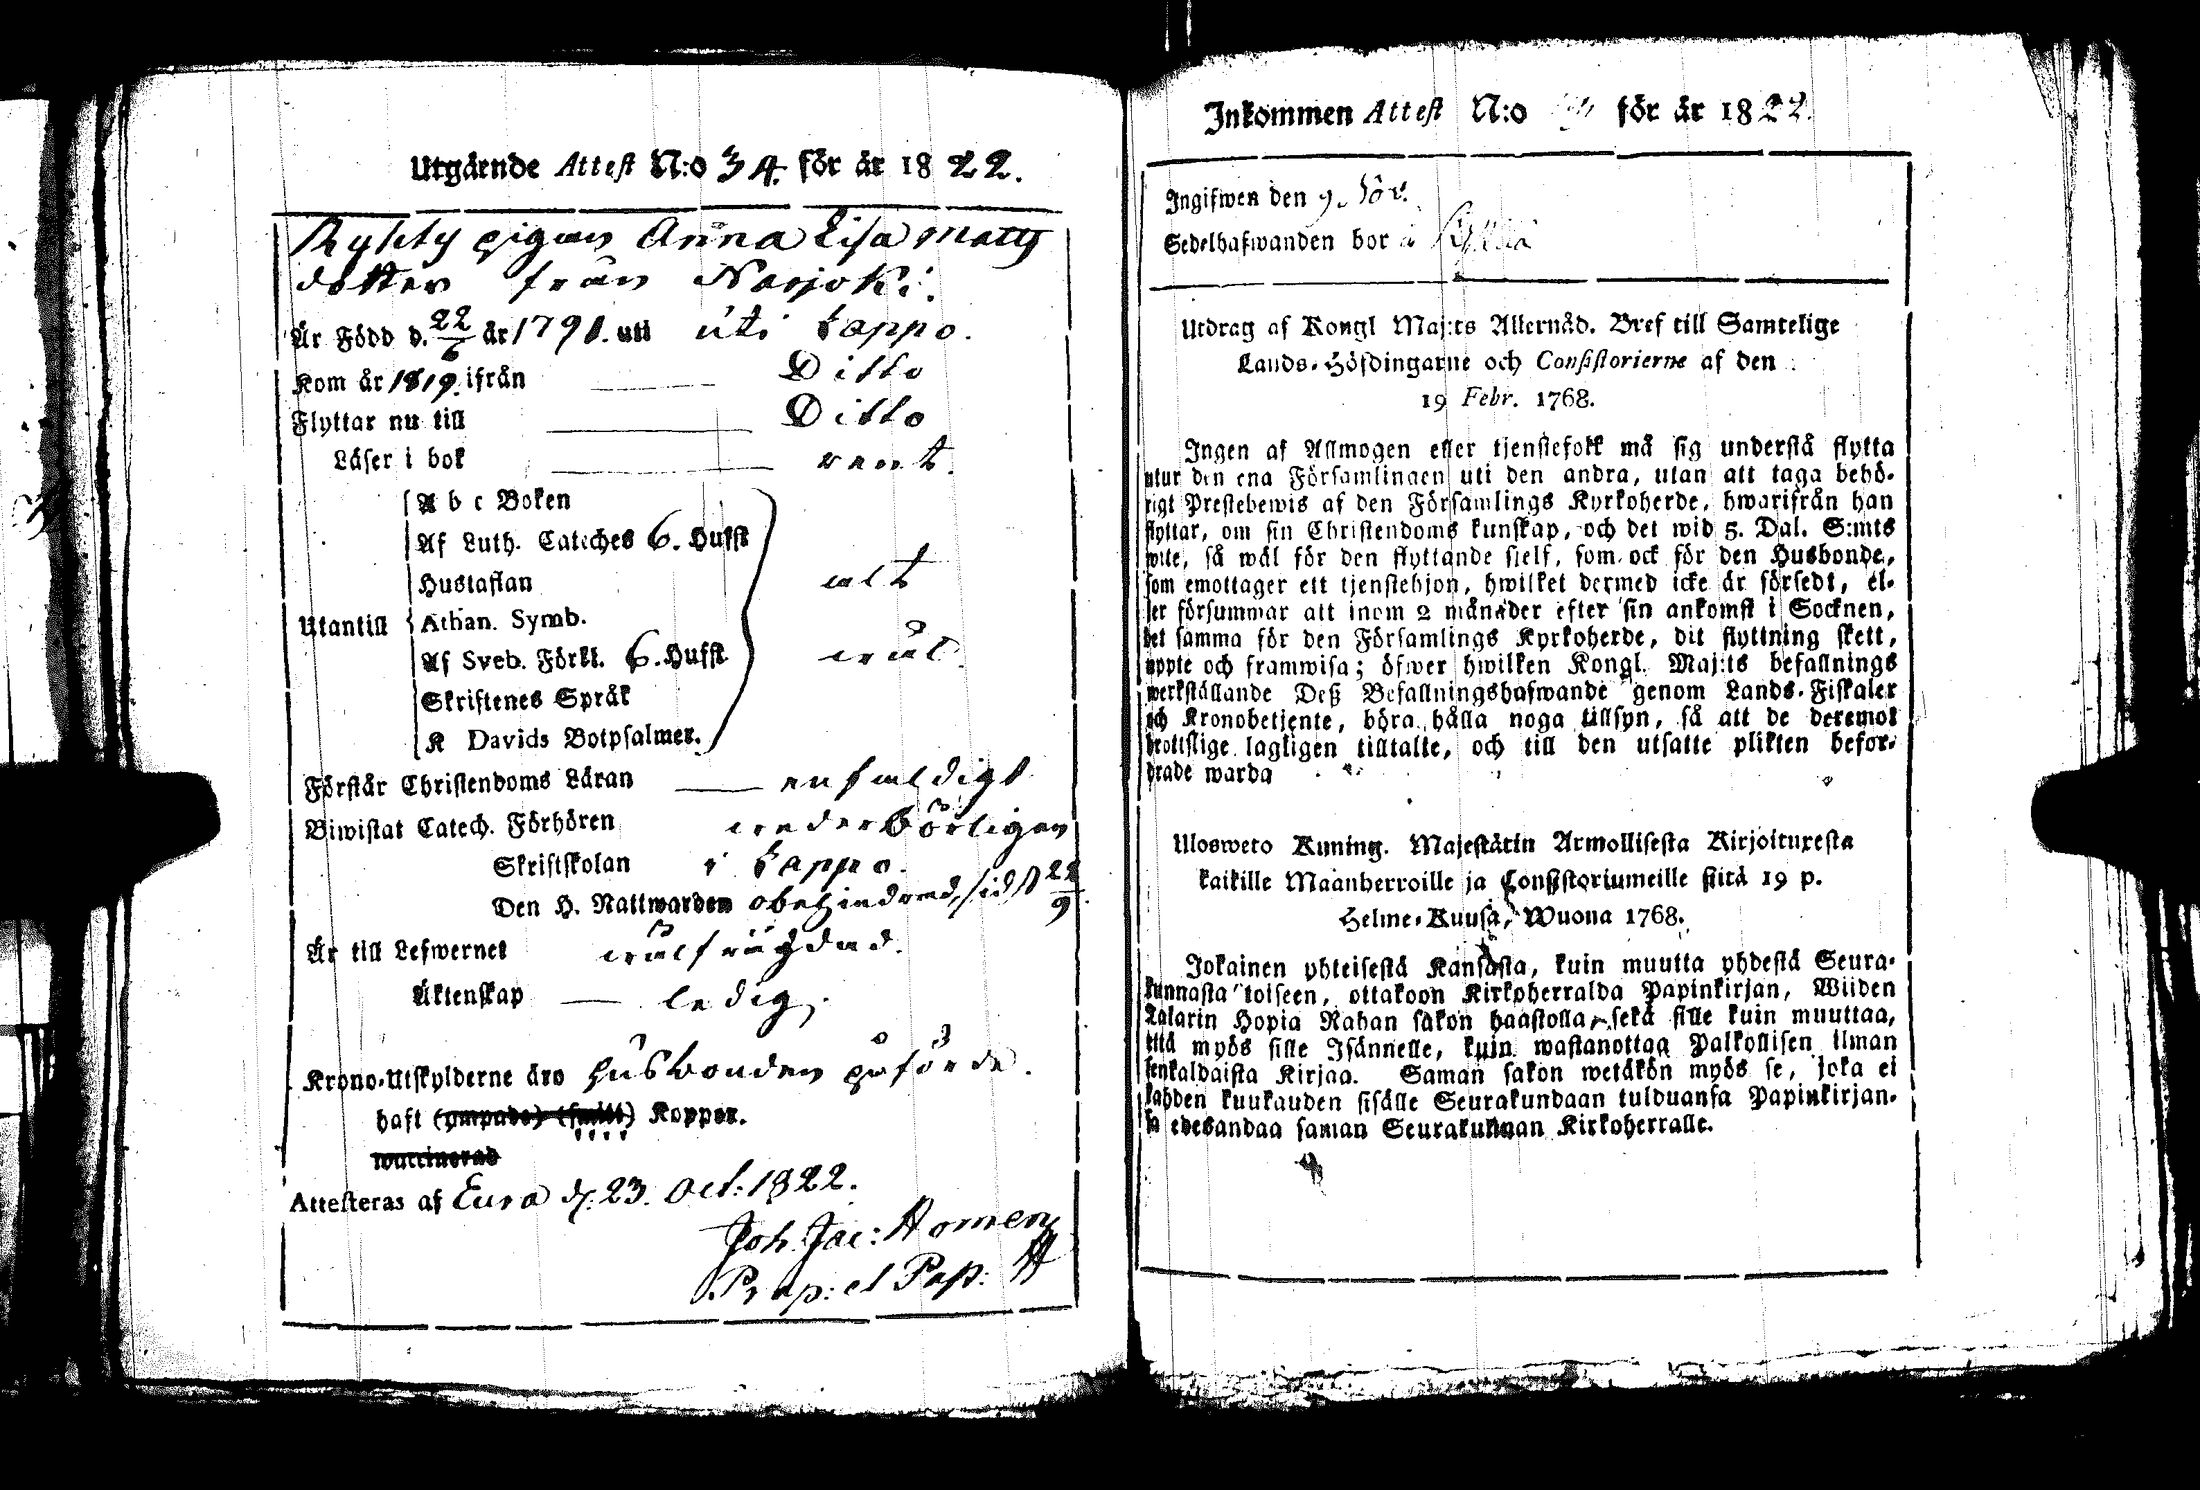 Utgående Attest N:o 34. för år 1822.
pigan Anna Lisa Matts
dotter från Narjoki.
Är Född d. 22/6 år 1791. uti uti Lappo.
Kom år 1819. ifrån Ditto
Flyttar nu till Ditto
Läser i bok rent.
A b c Boken
Af Luth. Cateches 6. Hufst
Hustaflan alt
Utantill Athan. Symb.
Af Sveb. Förkl. 6. Hufst wäl.
Skriftenes Språk
K Davids Botpsalmer.
Förstår Christendoms Läran enfaldigt
Biwistat Catech. Förhören wederbörligen
Skriftskolan i Lappo.
Den H. Nattwarden obehindrad, sidst 22/9
Är till Lefwernet wälfrägdad.
Äktenskap ledig.
Krono-Utskylderne äro husbonden påförde.
haft (ympade) (smitt) Koppor.
waccinerad
Attesteras af Eura d. 23. Oct: 1822.
Joh. Jac: Homen
Præp: et Past:
Inkommen Attest N:o för år 1822.
Ingifwen den 9. Nov.
Sedelhafwanden bor i
Utdrag af Kongl Maj:ts Allernåd. Bref till Samtelige
Lands-Höfdingarne och Consistorierne af den
19 Febr. 1768.
Ingen af Allmogen eller tjenstefolk må sig understå flytta
utur den ena Församlingen uti den andra, utan att taga behö-
rigt Prestebewis af den Församlings Kyrkoherde, hwarifrån han
flyttar, om sin Christendoms kunskap, och det wid 5. Dal. S:mts
wite, så wäl för den flyttande sielf, som ock för den Husbonde,
som emottager ett tjenstehjon, hwilket dermed icke är försedt, el-
ler försummar att inom 2 månader efter sin ankomst i Socknen,
det samma för den Församlings Kyrkoherde, dit flyttning skett,
uppte och framwisa; öfwer hwilken Kongl. Maj:ts befallnings
werkställande Deß Befallningshafwande genom Lands-Fiskaler
och Kronobetjente, böra hålla noga tillsyn, så att de deremot
brottslige lagligen tilltalte, och till den utsatte plikten befor-
drade warda
Ulosweto Kuning. Majestätin Armollisesta Kirjoituxesta
kaikille Maanherroille ja Consistoriumeille siitä 19 p.
Helme-Kuusa, Wuona 1768.
Jokainen yhteisestä Kansasta, kuin muutta yhdestä Seura-
kunnasta toiseen, ottakoon Kirkoherralda Papinkirjan, Wiiden
Talarin Hopia Rahan sakon haastolla, sekä sille kuin muuttaa,
että myös sille Isännelle, kuin wastanottaa Palkollisen ilman
senkaldaista Kirjaa. Saman sakon wetäkön myös se, joka ei
kahden kuukauden sisälle Seurakundaan tulduansa Papinkirjan-
sa edesandaa saman Seurakunnan Kirkoherralle.